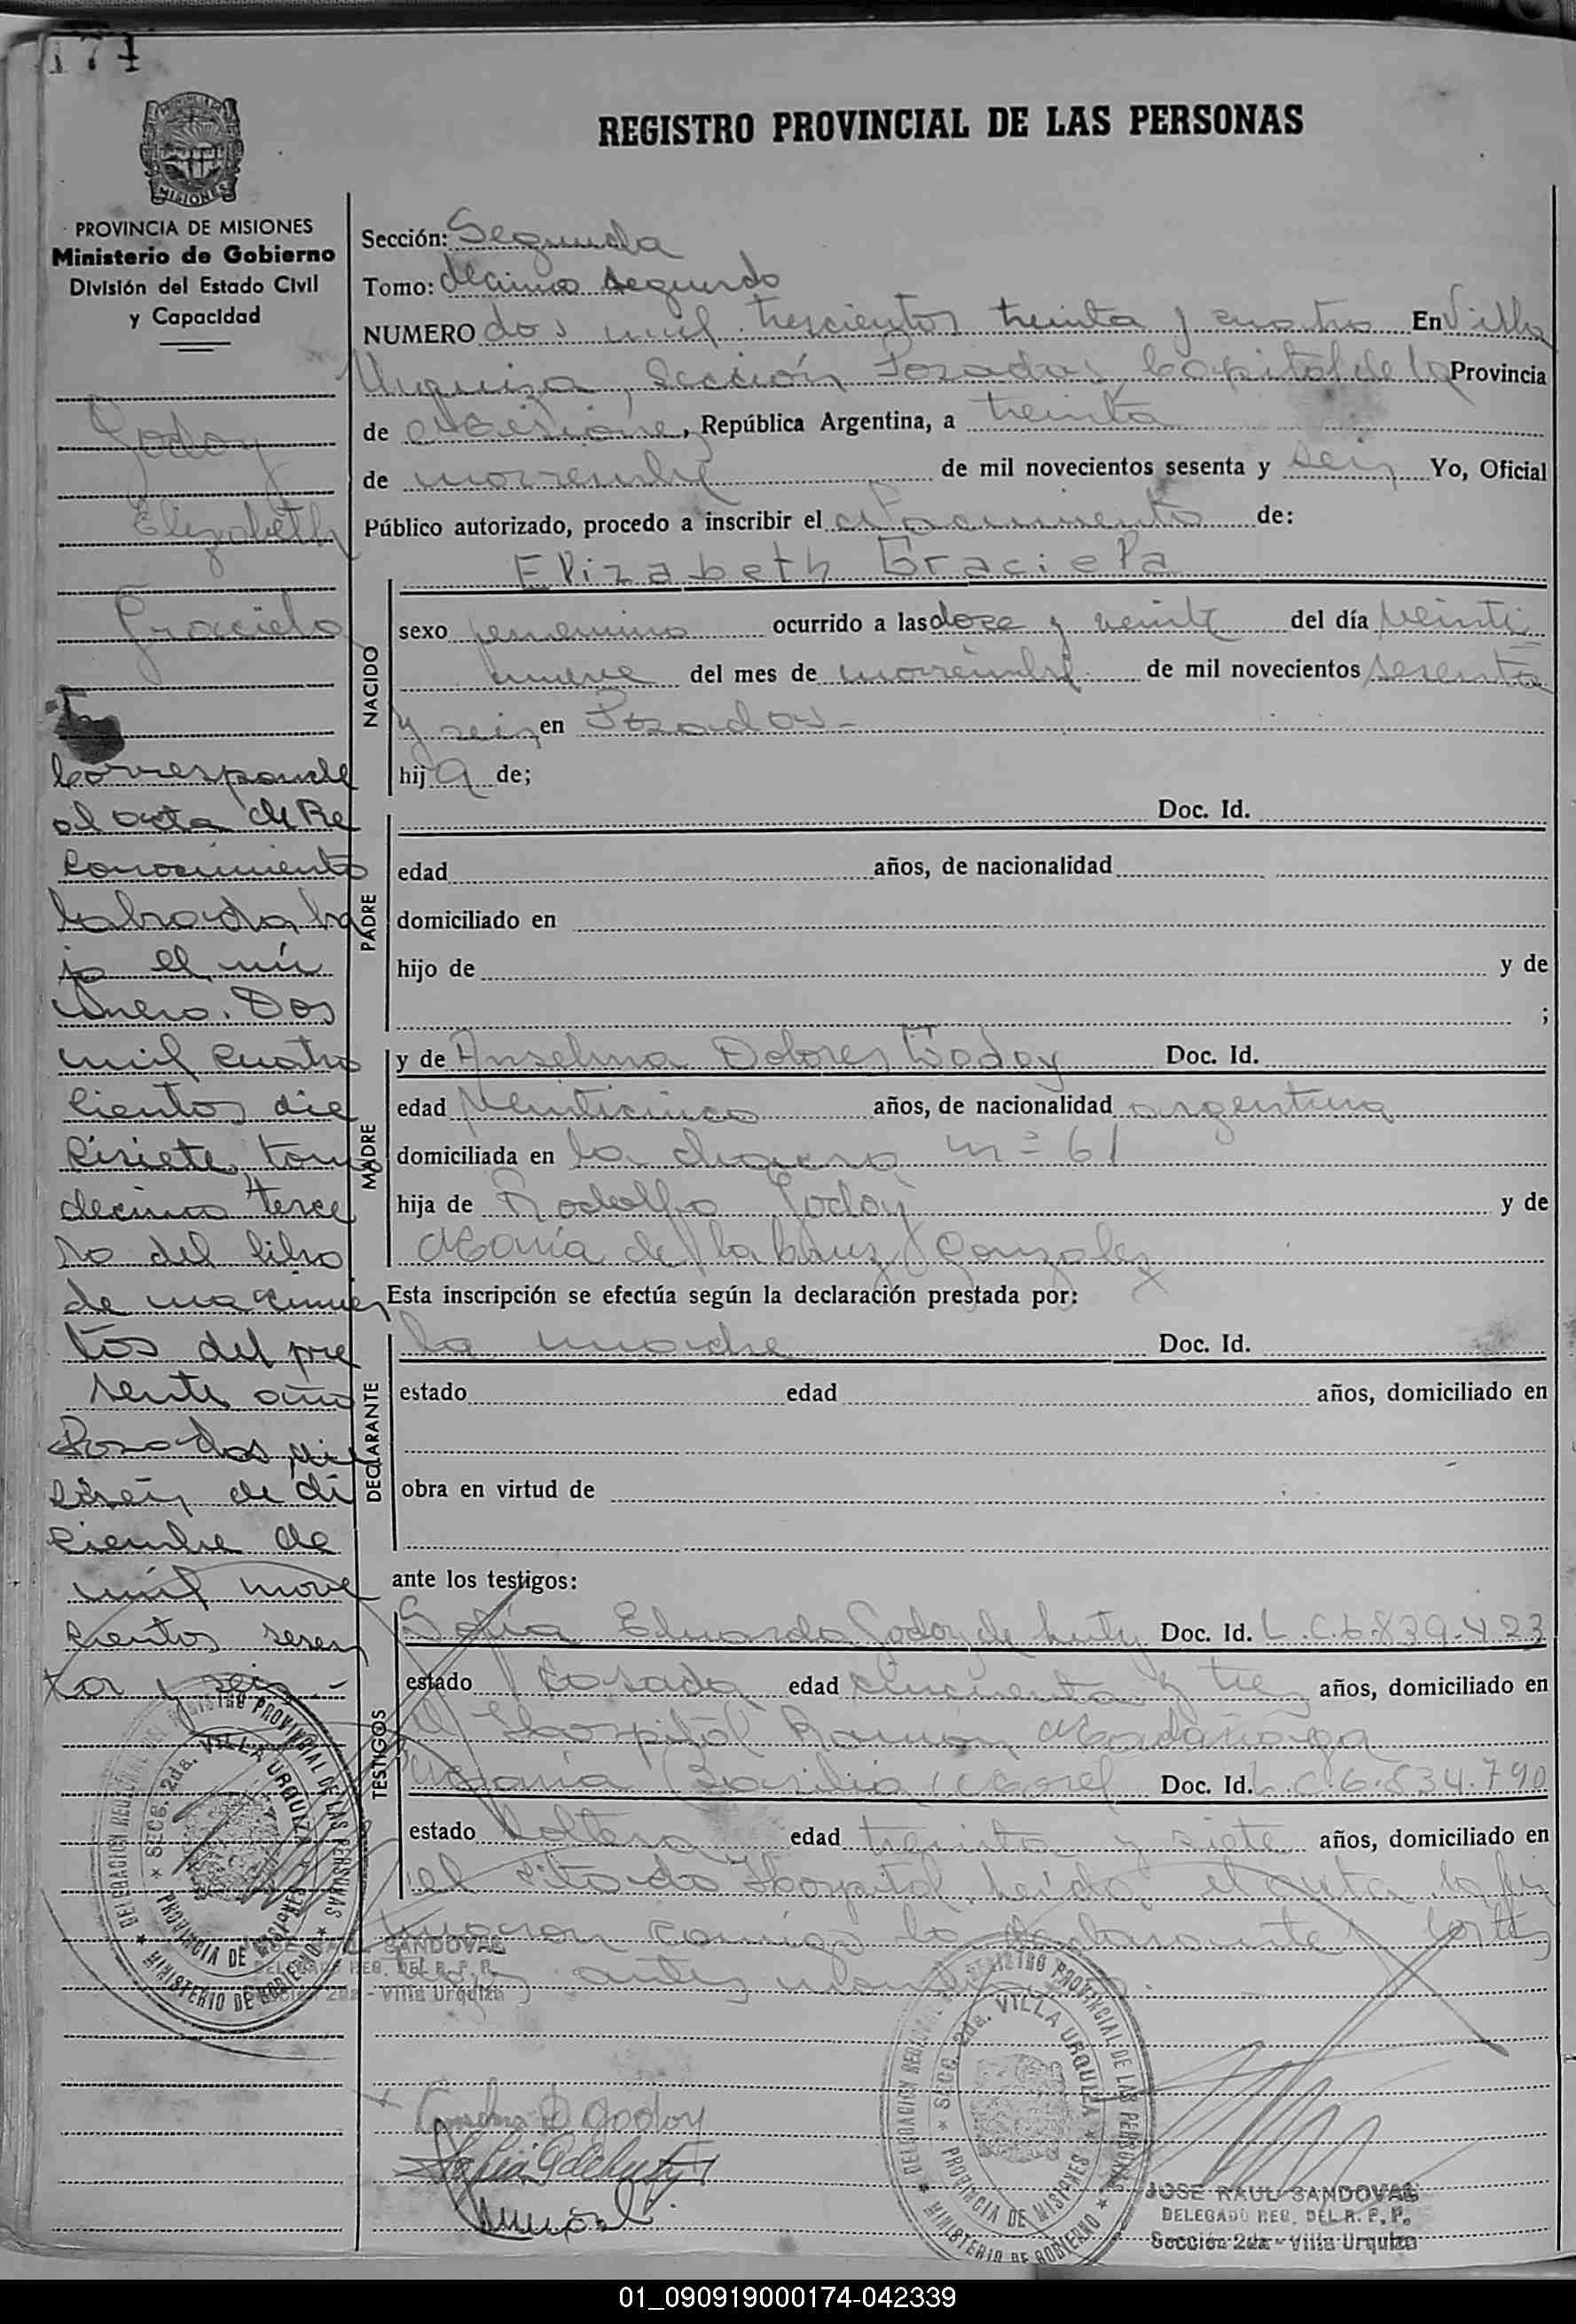 174
MISIONES
PROVINCIA DE MISIONES
Ministerio de Gobierno
División del Estado Civil
y Capacidad
Godoy
Elizabeth
Graciela
Corresponde
al acta de Re
conocimiento
labrada ba
jo el nú
mero. Dos
mil cuatro
cientos die
cisiete, tomo
decimo terce
ro del libro
de nacimien
tos del pre
sente año
Posadas, die
ciseis de di
ciembre de
mil nove
cientos sesen
ta y seis.-
REGISTRO PROVINCIAL DE LAS PERSONAS
Sección: Segunda
Tomo: decimo segundo
NUMERO dos mil trescientos treinta y cuatro En Villa
Urquiza, Sección Posadas, Capital de la Provincia
de Misiones, República Argentina, a treinta
de noviembre de mil novecientos sesenta y seis Yo, Oficial
Público autorizado, procedo a inscribir el Nacimiento de:
Elizabeth Graciela
NACIDO
sexo femenino ocurrido a las doce y veinte del día veinti
nueve del mes de noviembre de mil novecientos sesenta
y seis en Posadas-
hija de;
PADRE
Doc. Id.
edad años, de nacionalidad
domiciliado en
hijo de y de
;
MADRE
y de Anselma Dolores Godoy Doc. Id.
edad Veinticinco años, de nacionalidad argentina
domiciliada en la chacra nº 61
hija de Rodolfo Godoy y de
María de la Cruz Gonzalez
Esta inscripción se efectúa según la declaración prestada por:
DECLARANTE
la madre Doc. Id.
estado edad años, domiciliado en
obra en virtud de
ante los testigos:
TESTIGOS
Sofía Eduarda Godoy de Doc. Id. L.C.6.839.423
estado Casada edad cincuenta y tres años, domiciliado en
el Hospital Ramón Madariaga
María Basilia Doc. Id. L.C.6.834.790
estado Soltera edad treinta y siete años, domiciliado en
el citado Hospital, leída el acta, la fir
maron conmigo la declarante y testi
gos antes
D Godoy
DELEGACION REGIONAL DEL REGISTRO PROVINCIAL DE LAS PERSONAS
* SECC. 2da. VILLA URQUIZA *
PROVINCIA DE MISIONES
* MINISTERIO DE GOBIERNO *
JOSE RAUL SANDOVAL
DELEGADO REG. DEL R. P. P.
Sección 2da - Villa Urquiza
DELEGACION REGIONAL DEL REGISTRO PROVINCIAL DE LAS PERSONAS
* SECC. 2da. VILLA URQUIZA *
PROVINCIA DE MISIONES
* MINISTERIO DE GOBIERNO *
JOSE RAUL SANDOVAL
DELEGADO REG. DEL R. P. P.
Sección 2da - Villa Urquiza
01_090919000174-042339